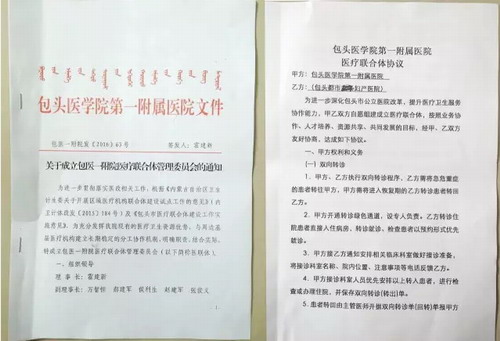 包头医学院第一附属医院文件
包医一附院发〔2016〕63号 签发人：霍建新
关于成立包医一附院医疗联合体管理委员会的通知
为进一步贯彻落实医改相关工作，根据《内蒙古自治区卫生
计生委关于开展区域医疗机构联合体建设试点工作的意见》（内
卫计体改发〔2015〕184号）及《包头市医疗联合体建设工作实
施意见》，为充分发挥我院现有的医疗卫生资源优势，与周边基
层医疗机构建立长期稳定的分工协作机制，明确职责，结合实际，
特成立包医一附院医疗联合体管理委员会（以下简称医联体）。
一、组织领导
理事长：霍建新
副理事长：万智恒 郝建军 侯利生 赵建军
1
包头医学院第一附属医院
医疗联合体协议
甲方：包头医学院第一附属医院
乙方：（包头都市妇产医院）
为进一步深化包头市公立医院改革，提升医疗卫生服
务协作能力，甲乙双方自愿组建成立医疗联合体，按照业务协
作、人才培养、资源共享、共同发展的目标，经甲、乙双方
友好协商，达成如下协议。
一、甲方权利和义务
（一）双向转诊
1、甲方、乙方执行双向转诊程序，乙方需将急危重症
的患者转往甲方，甲方需将进入恢复期的乙方转诊患者转回
乙方。
2、甲方开通转诊绿色通道，设专人负责，乙方转诊住
院患者直接入住病房，转诊就诊、检查患者以预约形式优先
就诊。
3、甲方接乙方通知安排相关临床科室做好接诊准备，
将接诊科室名称、院内位置、注意事项等电话反馈乙方。
4、甲方接诊科室人员优先安排以上转入患者，进行检
查或办理住院，并保存双向转诊（转出）单。
5、患者转回由主管医师开做双向转诊单（回转）单报甲方